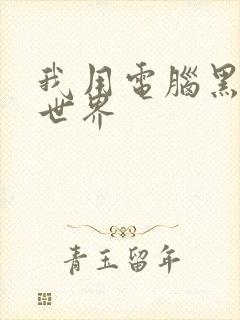 我用電腦黑
世界
青玉留年